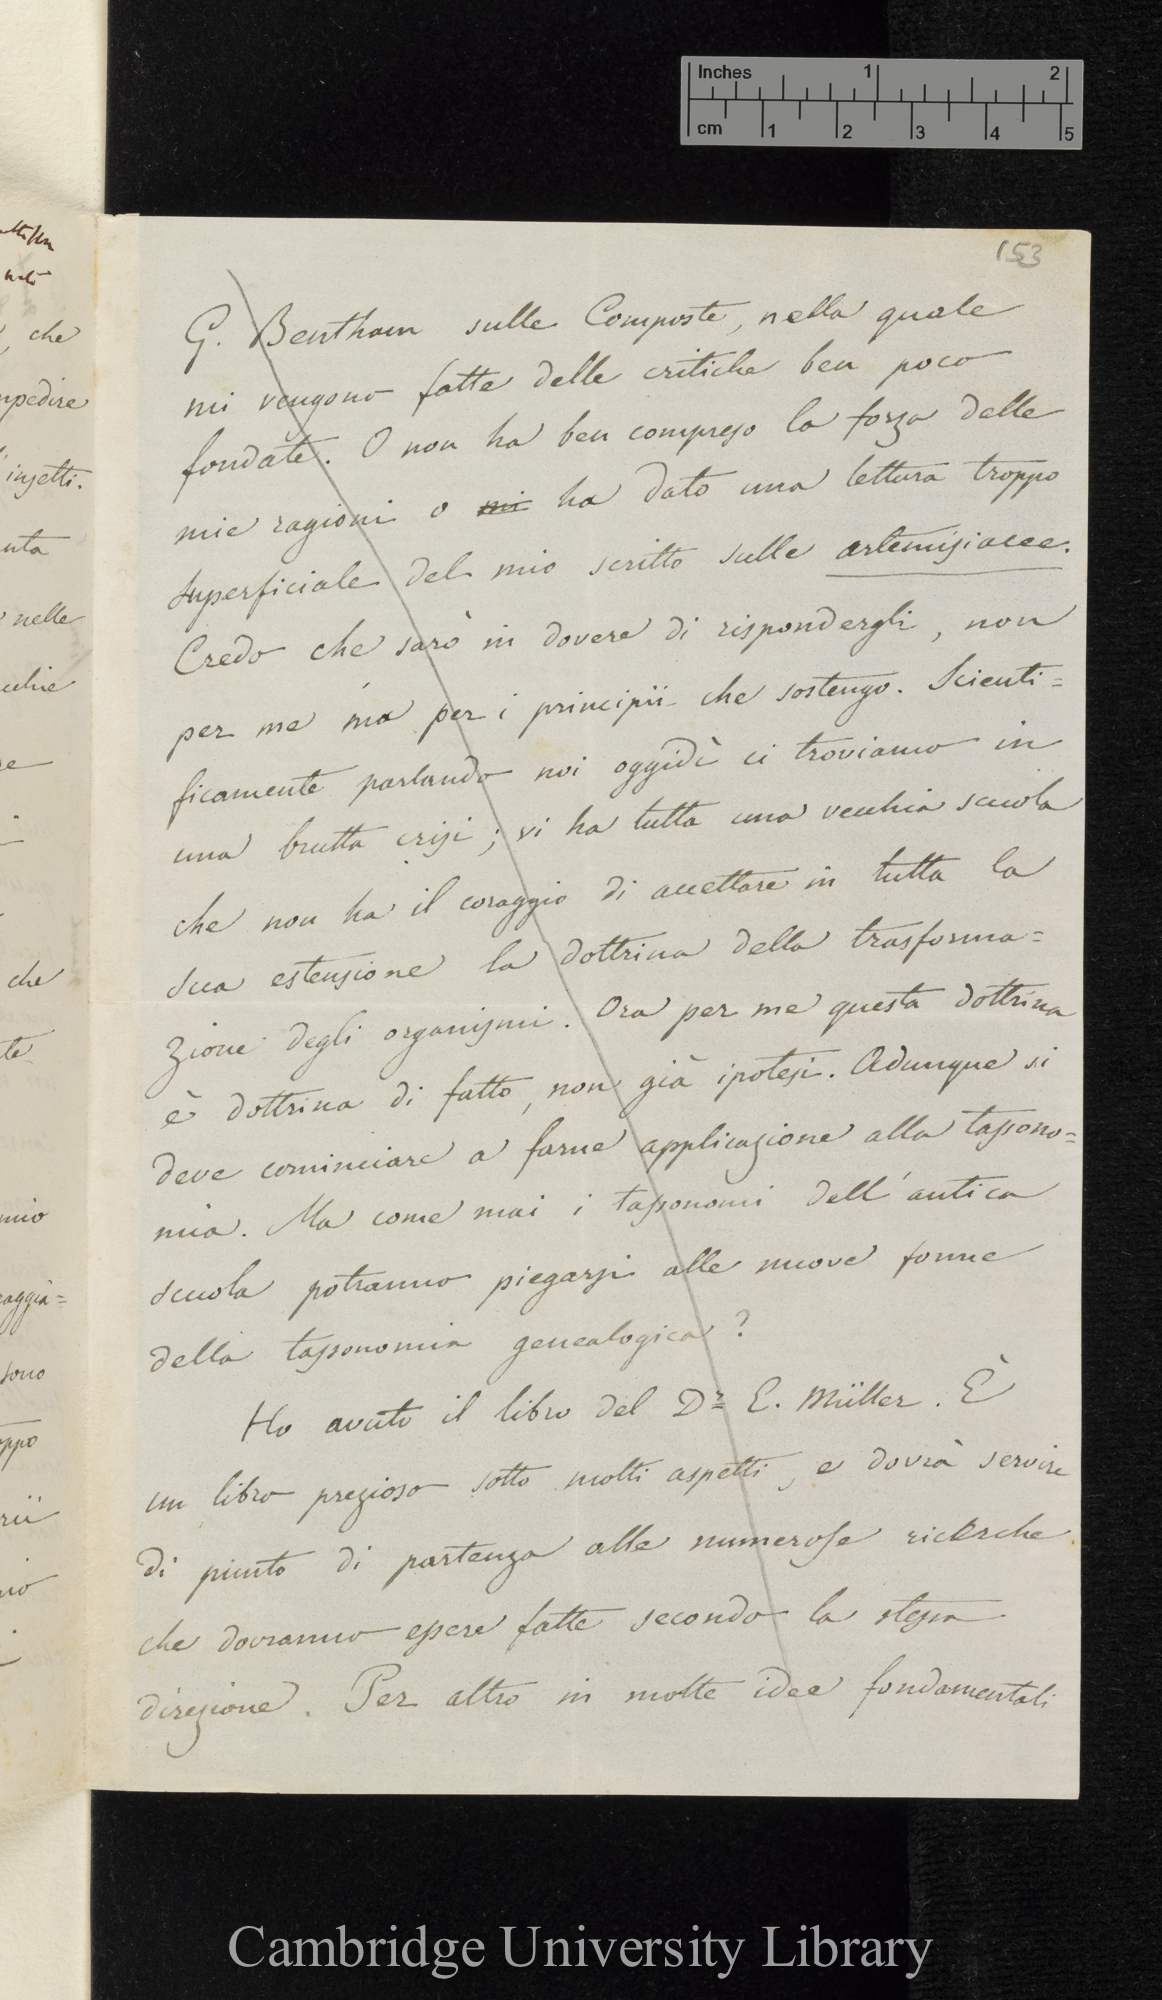 Inches 1 2
cm 1 2 3 4 5
153
che
insetti.
nelle
che
sono
G. Bentham sulle Composte, nella quale
mi vengono fatte delle critiche ben poco
fondate. O non ha ben compreso la forza delle
mie ragioni o mi ha dato una lettura troppo
superficiale del mio scritto sulle artemisiacee.
Credo che sarò in dovere di rispondergli, non
per me ma per i principii che sostengo. Scienti=
ficamente parlando noi oggidì ci troviamo in
una brutta crisi; vi ha tutta una vecchia scuola
che non ha il coraggio di accettare in tutta la
sua estensione la dottrina della trasforma=
zione degli organismi. Ora per me questa dottrina
è dottrina di fatto, non già ipotesi. Adunque si
deve cominciare a farne applicazione alla tassono=
mia. Ma come mai i tassonomi dell'antica
scuola potranno piegarsi alle nuove forme
della tassonomia genealogica?
Ho avuto il libro del Dr E. Müller. È
un libro prezioso sotto molti aspetti, e dovrà servire
di punto di partenza alle numerose ricerche
che dovranno essere fatte secondo la stessa
direzione. Per altro in molte idee fondamentali
Cambridge University Library